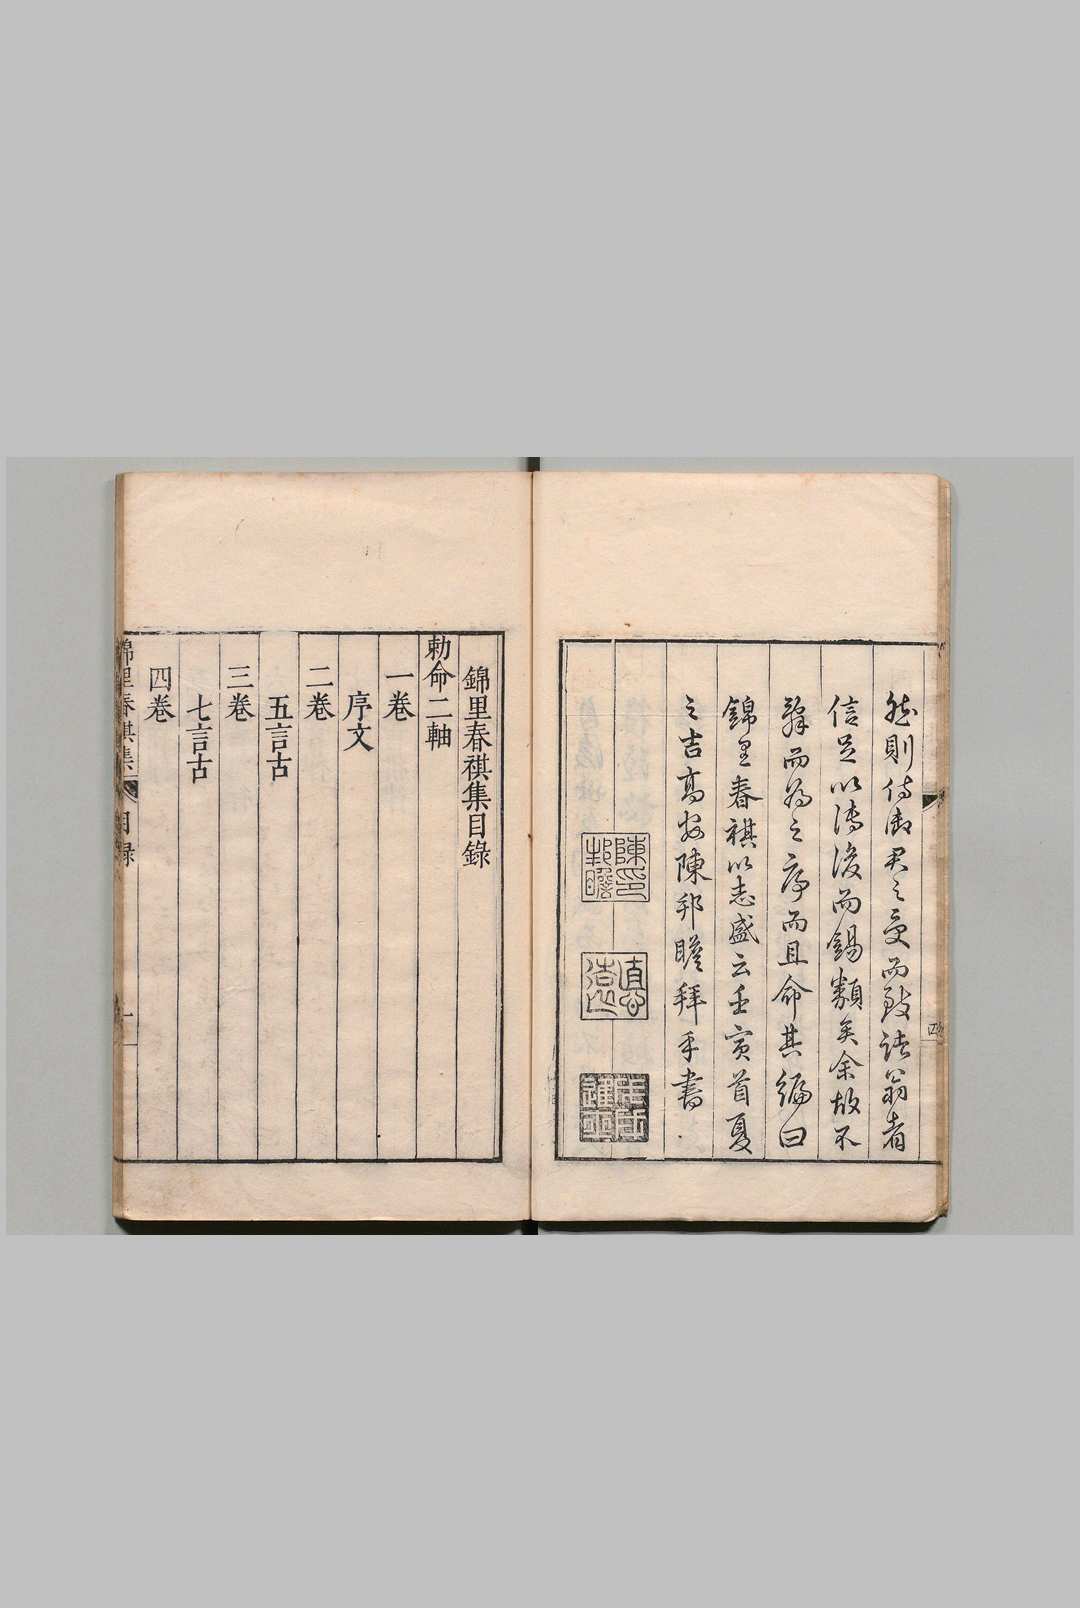 然則侍御君之受而致諸翁者
信足以傳後而錫類矣余故不
辭而為之序而且命其編曰
錦里春祺以志盛云壬寅首夏
之吉高安陳邦瞻拜手書
陳印邦瞻
德遠
四
錦里春祺集目錄
勅命二軸
一卷
序文
二卷
五言古
三卷
七言古
四卷
錦里春祺集
目錄
一